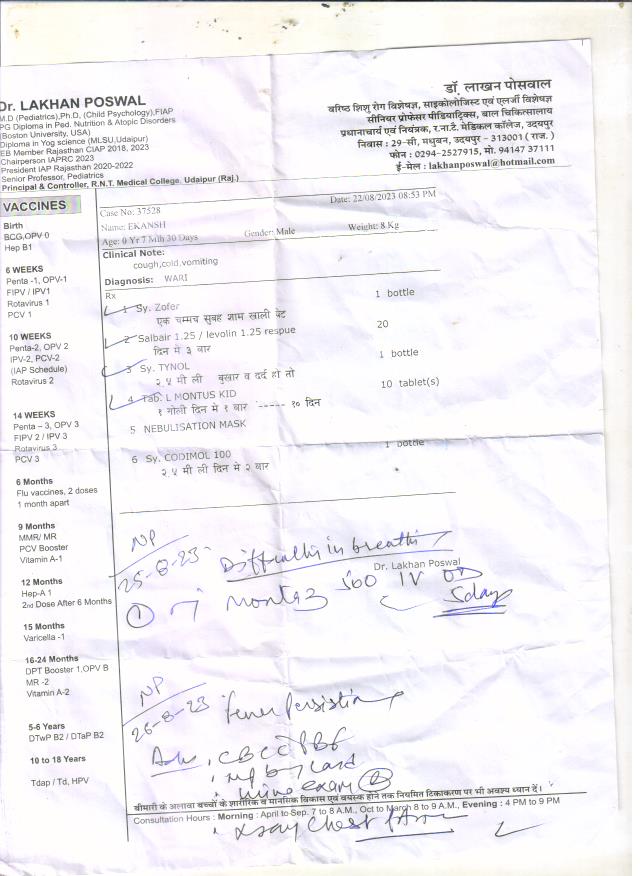 Dr. LAKHAN POSWAL
M.D (Pediatrics),Ph.D, (Child Psychology),FIAP
PG Diploma in Ped. Nutrition & Atopic Disorders
(Boston University, USA)
Diploma in Yog science (MLSU,Udaipur)
EB Member Rajasthan CIAP 2018, 2023
Chairperson IAPRC 2023
President IAP Rajasthan 2020-2022
Senior Professor, Pediatrics
Principal & Controller, R.N.T. Medical College. Udaipur (Raj.)
डॉ. लाखन पोसवाल
वरिष्ठ शिशु रोग विशेषज्ञ, साइकोलोजिस्ट एवं एलर्जी विशेषज्ञ
सीनियर प्रोफेसर पीडियाट्रिक्स, बाल चिकित्सालय
प्रधानाचार्य एवं नियंत्रक, र.ना.टै. मेडिकल कॉलेज, उदयपुर
निवास : 29-सी, मधुबन, उदयपुर - 313001 ( राज. )
फोन : 0294-2527915, मो. 94147 37111
ई-मेल : lakhanposwal@hotmail.com
VACCINES
Birth
BCG,OPV 0
Hep B1
6 WEEKS
Penta -1, OPV-1
FIPV / IPV1
Rotavirus 1
PCV 1
10 WEEKS
Penta-2, OPV 2
IPV-2, PCV-2
(IAP Schedule)
Rotavirus 2
14 WEEKS
Penta – 3, OPV 3
FIPV 2 / IPV 3
Rotavirus 3
PCV 3
6 Months
Flu vaccines, 2 doses
1 month apart
9 Months
MMR/ MR
PCV Booster
Vitamin A-1
12 Months
Hep-A 1
2nd Dose After 6 Months
15 Months
Varicella -1
16-24 Months
DPT Booster 1,OPV B
MR -2
Vitamin A-2
5-6 Years
DTwP B2 / DTaP B2
10 to 18 Years
Tdap / Td, HPV
Date: 22/08/2023 08:53 PM
Case No: 37528
Name: EKANSH
Age: 0 Yr 7 Mth 30 Days Gender: Male Weight: 8 Kg
Clinical Note:
cough,cold,vomiting
Diagnosis: WARI
Rx
1 Sy. Zofer 1 bottle
एक चम्मच सुबह शाम खाली पेट
2 Salbair 1.25 / levolin 1.25 respue 20
दिन मे ३ बार
3 Sy. TYNOL 1 bottle
२.५ मी ली बुखार व दर्द हो तो
4 Tab. L MONTUS KID 10 tablet(s)
१ गोली दिन मे १ बार ----- १० दिन
5 NEBULISATION MASK
6 Sy. CODIMOL 100 1 bottle
२.५ मी ली दिन मे २ बार
NP
25-8-23 Difficulty in breathi
Dr. Lakhan Poswal
1 IV OD
5 day
NP
26-8-23 Fever Persisting
Adv. CBC PBF
mp by card
Urine exam
बीमारी के अलावा बच्चों के शारीरिक व मानसिक विकास एवं वयस्क होने तक नियमित टिकाकरण पर भी अवश्य ध्यान दें।
Consultation Hours : Morning : April to Sep. 7 to 8 A.M., Oct to March 8 to 9 A.M., Evening : 4 PM to 9 PM
Xray Chest